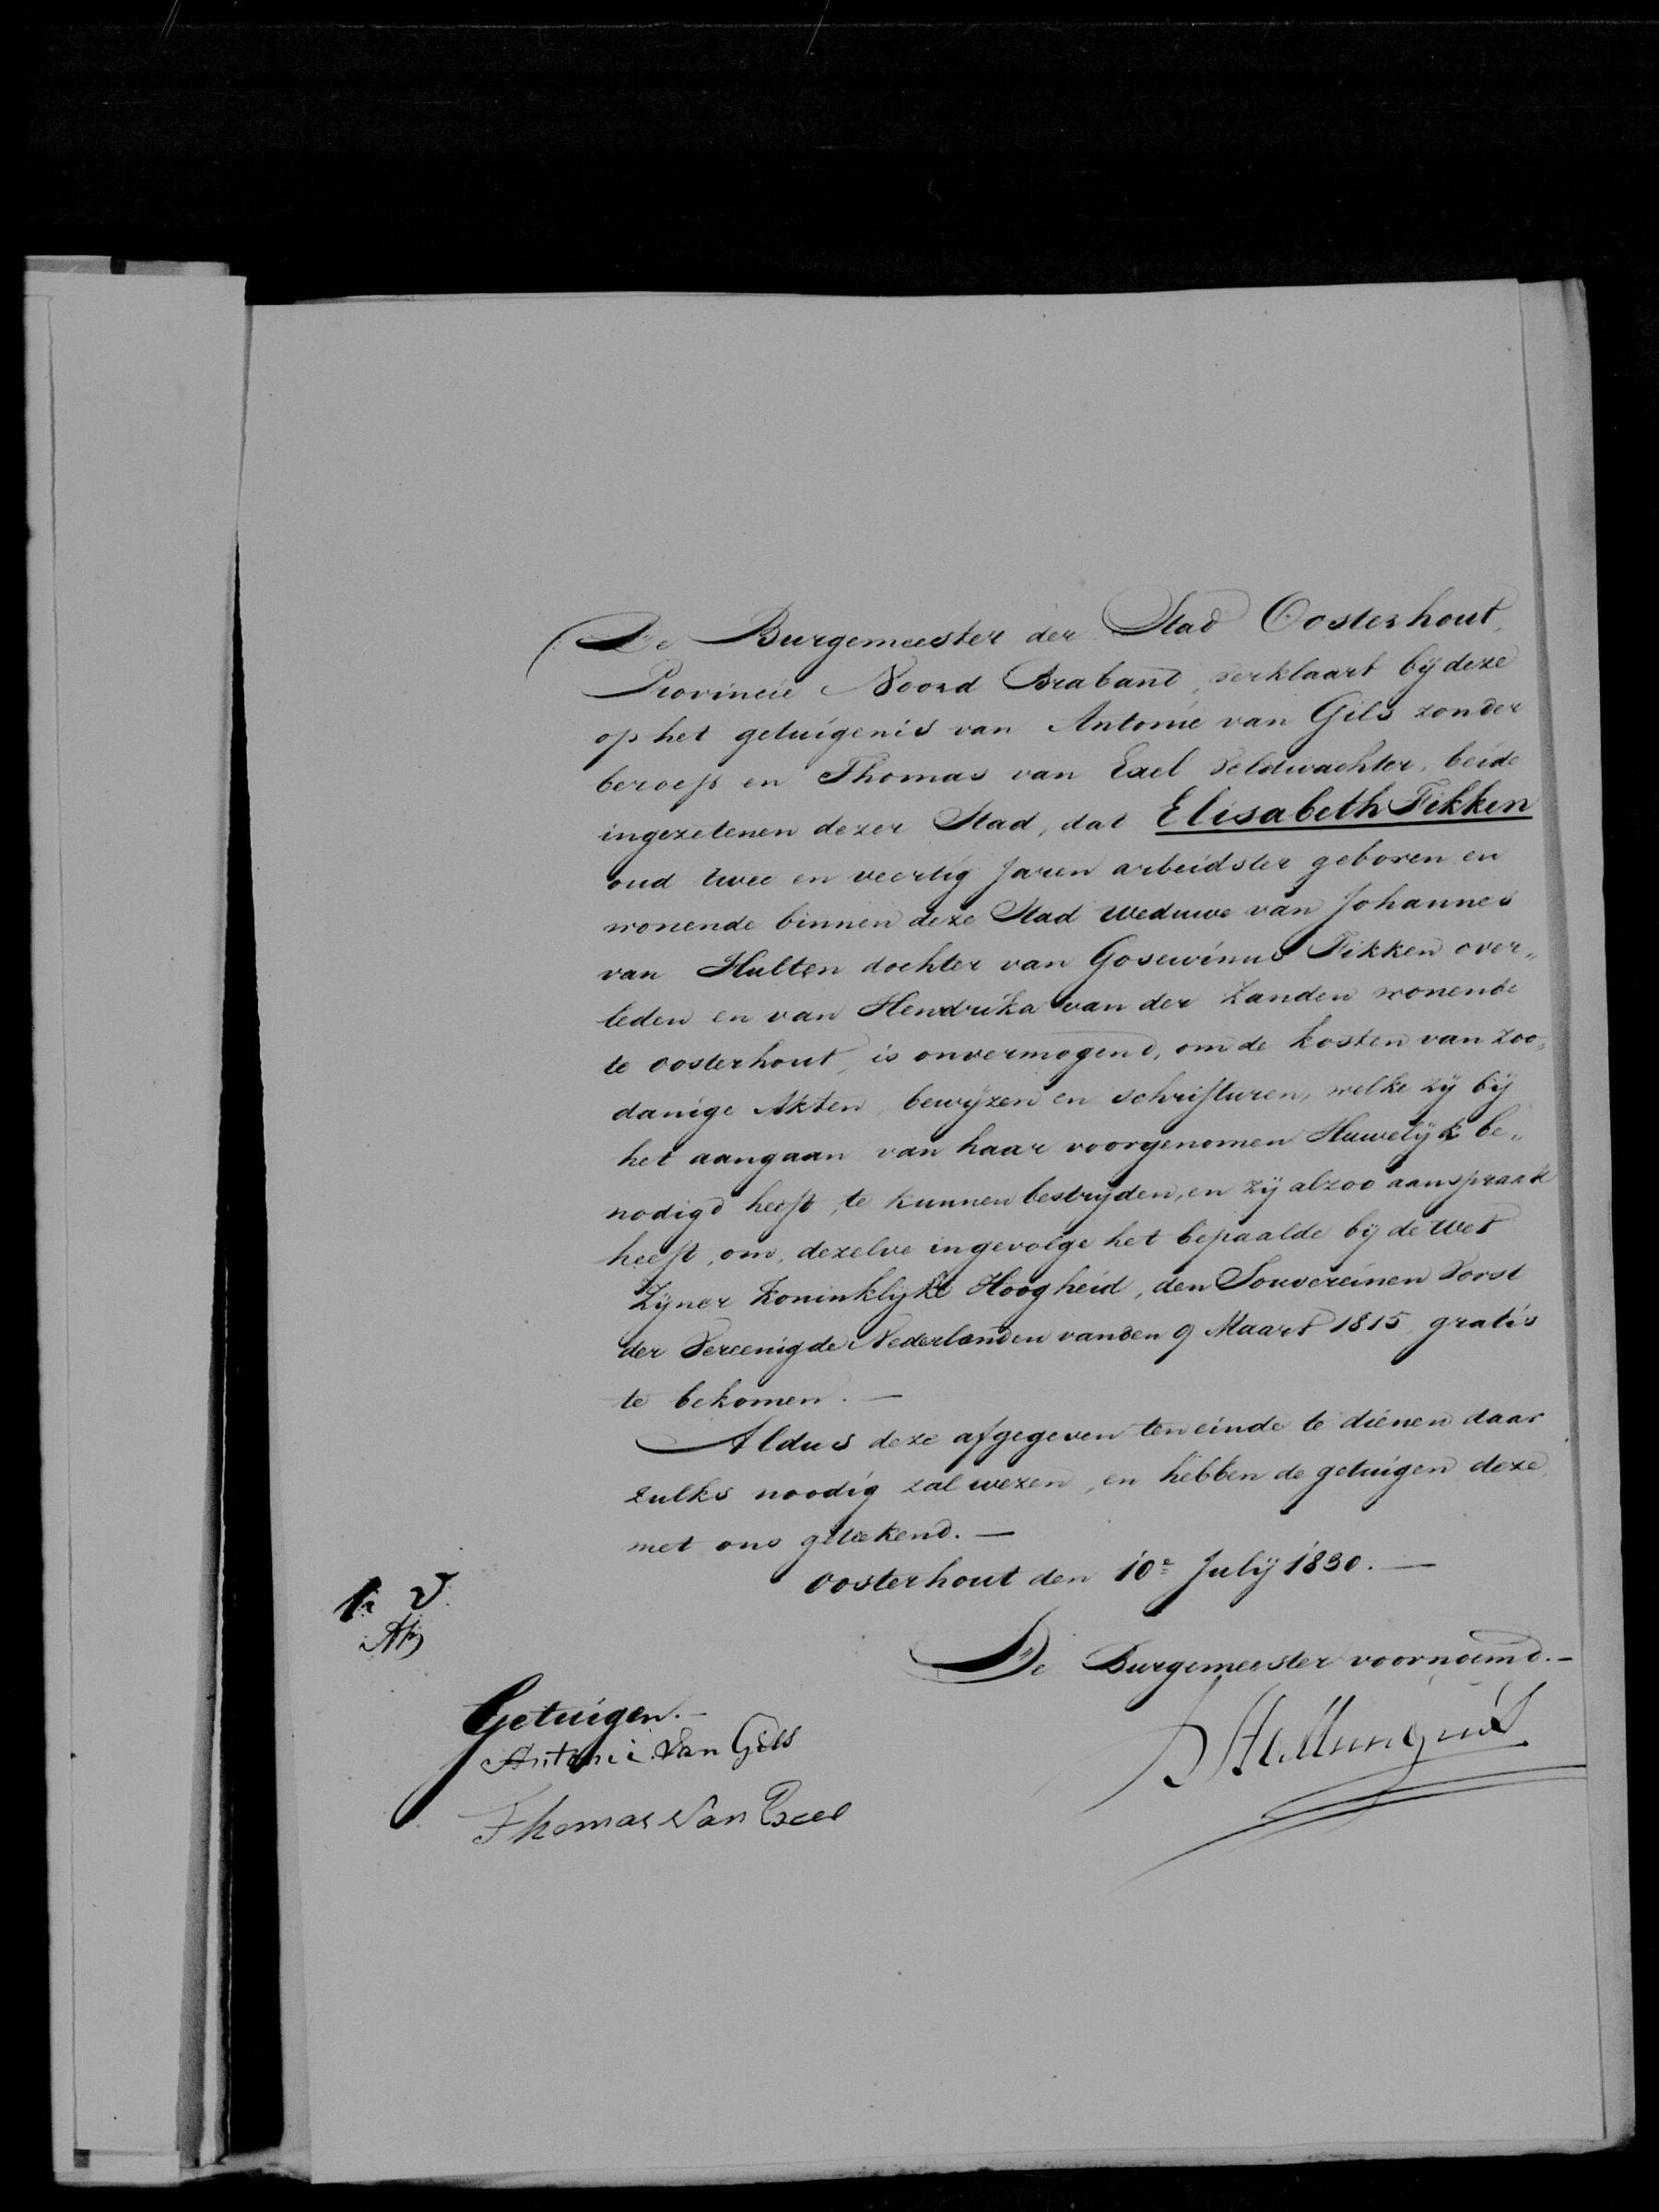 De Burgemeester der Stad Oosterhout,
Provincie Noord Braband, verklaart bij deze
op het getuigenis van Antonie van Gils zonder
beroep en Thomas van Exel veldwachter, beide
ingezetenen dezer Stad, dat Elisabeth Fikken
oud twee en veertig Jaren arbeidster geboren en
wonende binnen deze Stad weduwe van Johannes
van Hulten dochter van Gosewinus Fikken over„
leden en van Hendrika van der Zanden wonende
te Oosterhout, is onvermogend, om de kosten van zoo„
danige Akten, bewijzen en schrifturen, welke zij bij
het aangaan van haar voorgenomen Huwelijk be„
nodigd heeft, te kunnen bestrijden, en zij alzoo aanspraak
heeft, om, dezelve ingevolge het bepaalde bij de wet
Zijner Koninklijke Hoogheid, den Souvereinen Vorst
der Vereenigde Nederlanden van den 9 Maart 1815, gratis
te bekomen. —
Aldus deze afgegeven ten einde te dienen daar
zulks noodig zal wezen, en hebben de getuigen deze
met ons geteekend. —
Oosterhout den 10e July 1830. —
De Burgemeester voornoemd. —
Getuigen. —
Antonie Van Gils
Thomas Van Exel